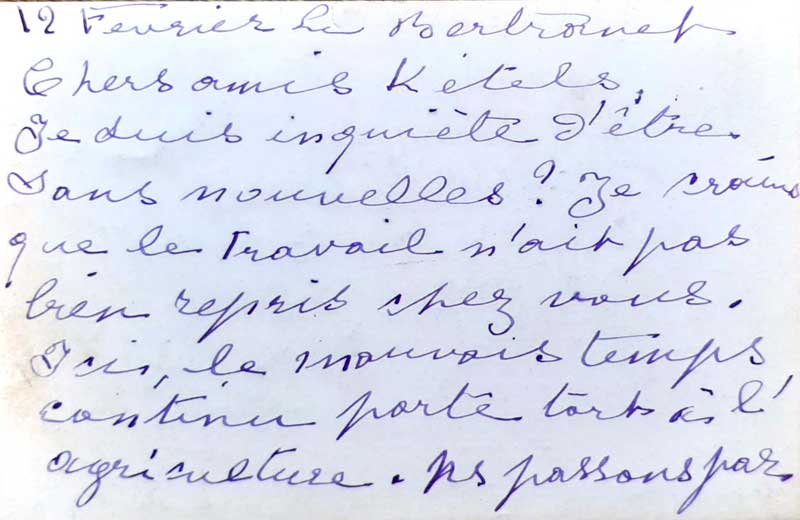 12 Fevrier Le Bertranet
Chers amis Ketels,
Je suis inquiète d'être
sans nouvelles ? Je crains
que le Travail n'ait pas
bien repris chez vous.
Ici, le mauvais temps
continu porte tort à l'
agriculture. Ns passons par